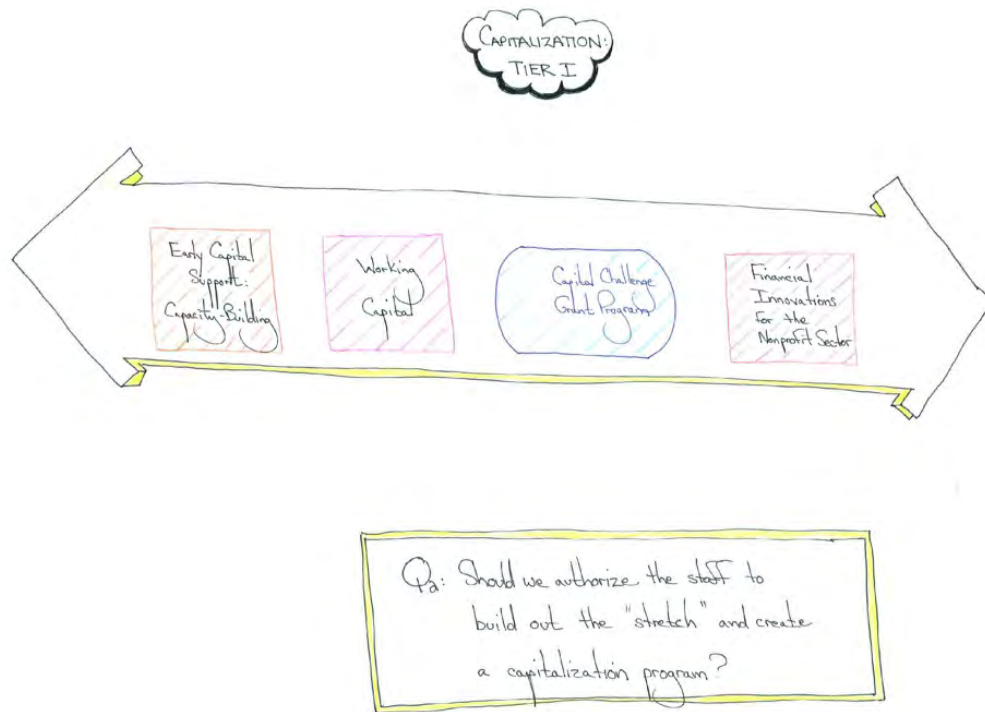 CAPITALIZATION:
TIER I
Early Capital
Support:
Capacity-Building
Working
Capital
Capital Challenge
Grant Program
Financial
Innovations
for the
Nonprofit Sector
Qa: Should we authorize the staff to
build out the "stretch" and create
a capitalization program?